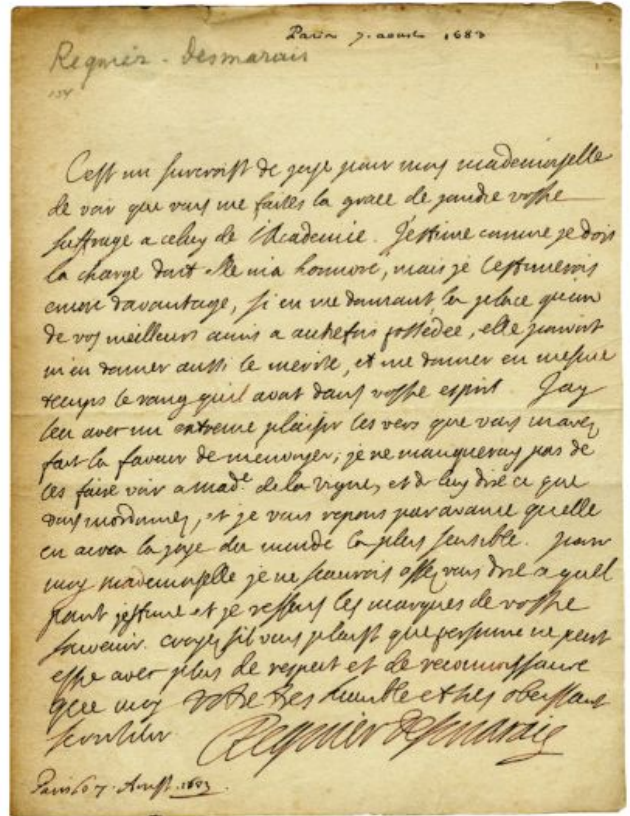 Paris 7. aoust 1683
Regnier - Desmarais
C'est un surcroist de joye pour moy mademoiselle
de voir que vous me faites la grace de joindre vostre
suffrage a celuy de l'Academie. J'estime comme je dois
la charge dont elle m'a honnoré, mais je l'estimerois
encore davantage, si en me donnant la place qu'un
de vos meilleurs amis a autrefois possedée, elle pouvoit
m'en donner aussi le merite, et me donner en mesme
temps le rang qu'il avoit dans vostre esprit. J'ay
leu avec un extreme plaisir les vers que vous m'avez
fait la faveur de m'envoyer; je ne manqueray pas de
les faire voir a mad.e de la vigne, et de luy dire ce que
vous m'ordonnez, et je vous repons par avance qu'elle
en aura la joye du monde la plus sensible. pour
moy mademoiselle je ne scaurois assez vous dire a quel
point j'estime et je ressens les marques de vostre
souvenir. croyez s'il vous plaist que personne ne peut
estre avec plus de respect et de reconnoissance
que moy vostre tres humble et tres obeissant
serviteur Regnier Desmarais
Paris le 7. Aoust. 1683.